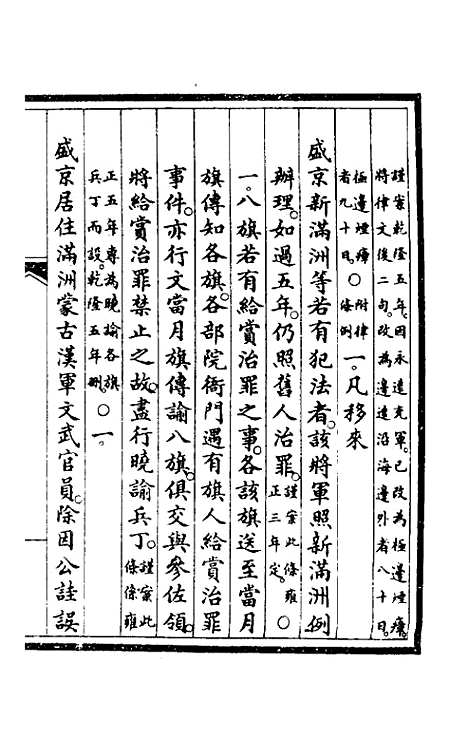 謹案乾隆五年因永遠充軍已改為極邊煙瘴
將律文後二句改為邊遠沿海邊外者八十日
極邊煙瘴
者九十日○附律
條例一凡移來
盛京新滿洲等若有犯法者該將軍照新滿洲例
辦理如過五年仍照舊人治罪謹案此條雍
正三年定○
一八旗若有給賞治罪之事各該旗送至當月
旗傳知各旗各部院衙門遇有旗人給賞治罪
事件亦行文當月旗傳諭八旗俱交與參佐領
將給賞治罪禁止之故盡行曉諭兵丁謹案此
條係雍
正五年專為曉諭各旗
兵丁而設乾隆五年刪○一
盛京居住滿洲蒙古漢軍文武官員除因公詿誤